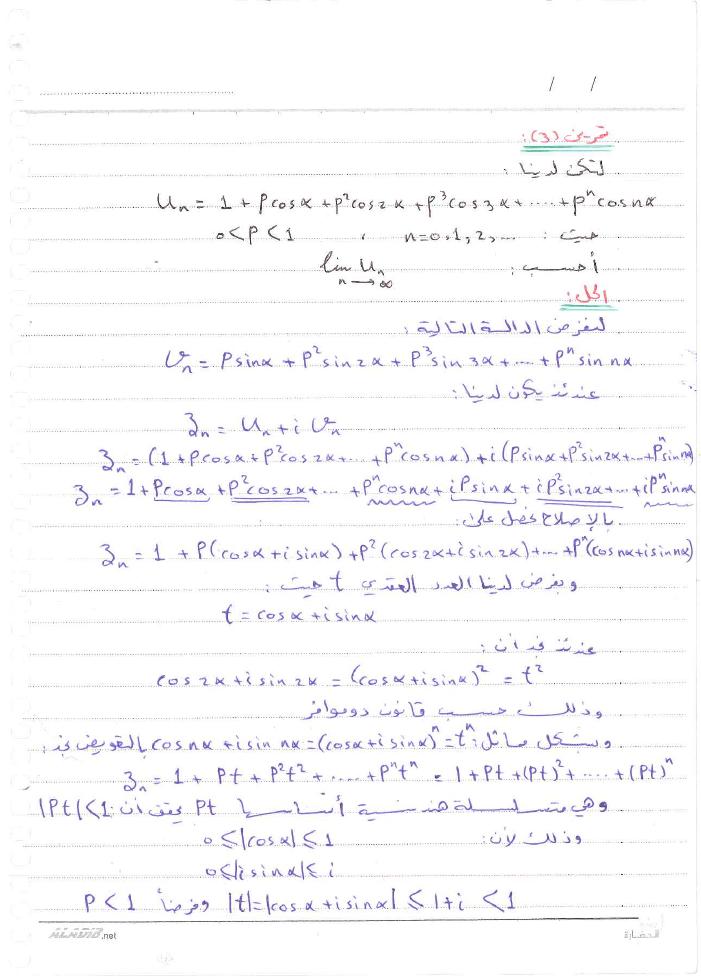 / /
تمرين (3):
لتكن لدينا:
Un = 1 + P cosα + P² cos2α + P³ cos3α + ..... + Pⁿ cosnα
حيث: n=0,1,2,... ، 0<P<1
أحسب: lim Un n→∞
الحل:
لنفرض الدالة التالية:
Vn = P sinα + P² sin2α + P³ sin3α + ... + Pⁿ sin nα
عندئذ يكون لدينا:
3n = Un + i Vn
3n = (1 + P cosα + P² cos2α + ... + Pⁿ cosnα) + i (P sinα + P² sin2α + ... + Pⁿ sin nα)
3n = 1 + P cosα + P² cos2α + ... + Pⁿ cosnα + iP sinα + iP² sin2α + ... + iPⁿ sin nα
بالإصلاح نحصل على:
3n = 1 + P(cosα + i sinα) + P²(cos2α + i sin2α) + ... + Pⁿ(cos nα + i sin nα)
وبفرض لدينا العدد العقدي t حيث:
t = cosα + i sinα
عندئذ نجد أن:
cos2α + i sin2α = (cosα + i sinα)² = t²
وذلك حسب قانون دوموافر
وبشكل مماثل: cosnα + i sin nα = (cosα + i sinα)ⁿ = tⁿ بالتعويض نجد:
3n = 1 + Pt + P²t² + ..... + Pⁿtⁿ = 1 + Pt + (Pt)² + .... + (Pt)ⁿ
وهي متسلسلة هندسية أساسها Pt يحقق أن: |Pt|<1
وذلك لأن: 0≤|cosα|≤1
0≤|i sinα|≤i
P<1 وفرضاً |t|=|cosα + i sinα| ≤ 1+i <1
ALADIB.net
الحضارة